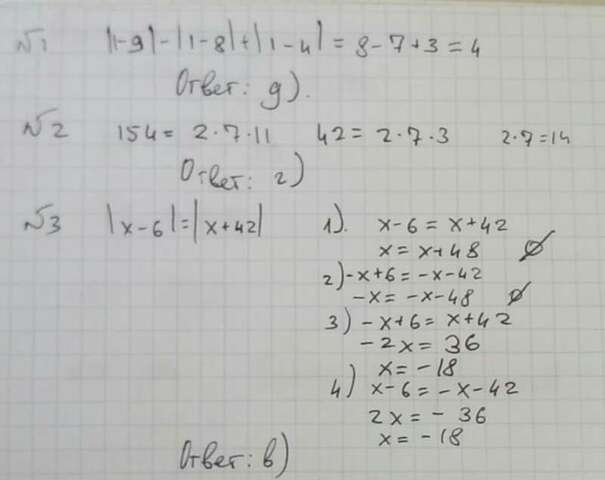 №1 |1-9|-|1-8|+|1-4| = 8-7+3=4
Ответ: д).
№2 154= 2·7·11 42= 2·7·3 2·7=14
Ответ: г)
№3 |x-6|=|x+42| 1). x-6 = x+42
x= x+48 ∅
2)-x+6= -x-42
-x= -x-48 ∅
3) -x+6= x+42
-2x= 36
x= -18
4) x-6= -x-42
2x= - 36
x= -18
Ответ: в)